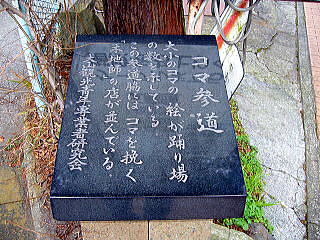 コマ参道
大小のコマの絵が踊り場
の数を示している
この参道脇には コマを挽く
木地師の店が並んでいる
観光青年事業者研究会